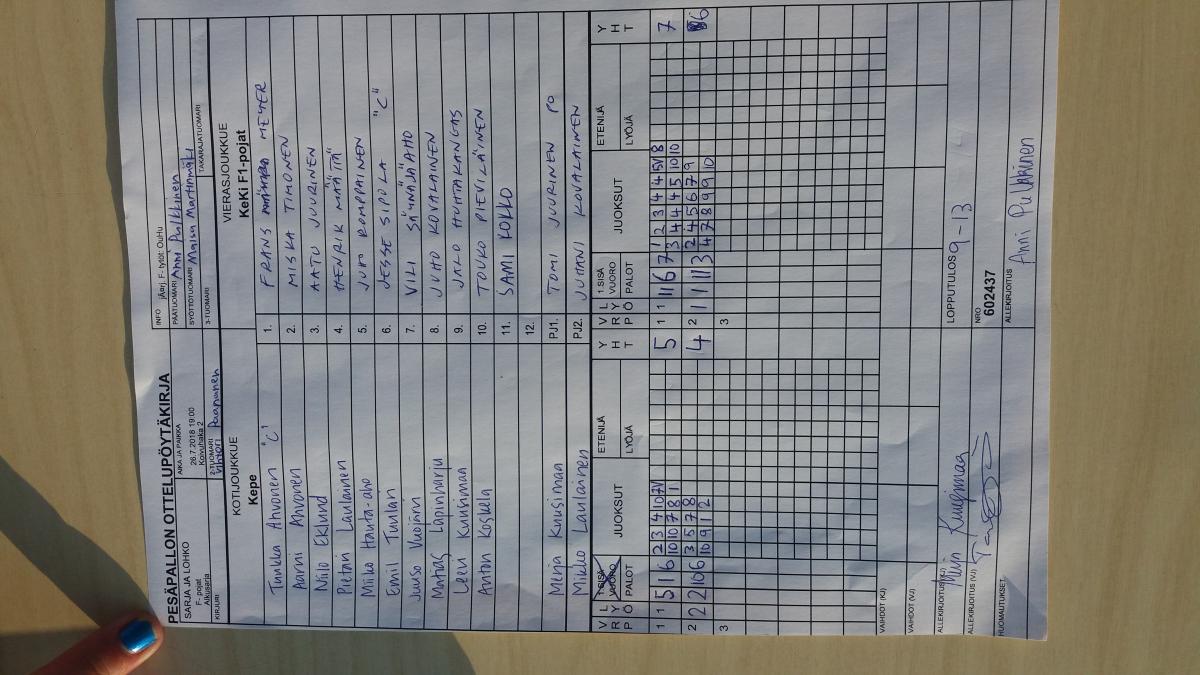 PESÄPALLON OTTELUPÖYTÄKIRJA
SARJA JA LOHKO
F- pojat
Alkusarja
AIKA JA PAIKKA
26.7.2018 19:00
Koivuhaka 2
INFO jÄrj. F- tytöt: OuHu
PÄÄTUOMARI Anni Pulkkinen
SYÖTTÖTUOMARI Maisa Martinmäki
KIRJURI
2-TUOMARI Paananen
3-TUOMARI
TAKARAJATUOMARI
KOTIJOUKKUE
Kepe
VIERASJOUKKUE
KeKi F1-pojat
Tuukka Ahvonen "C" 1. FRANS MEYER
Aarni Ahvonen 2. MISKA TIMONEN
Niilo Eklund 3. AATU JUURINEN
Pietari Laulainen 4. HENRIK MÄÄTTÄ
Miika Hauta-aho 5. JUHO ROMPPAINEN
Emil Tuulan 6. JESSE SIPOLA "C"
Juuso Vuojärvi 7. VILI SÄYNÄJÄAHO
Matias Lapinharju 8. JUHO KOVALAINEN
Leevi Kuusiman 9. JALO HUHTAKANGAS
Anton Koskela 10. TOUKO PIEVILÄINEN
11. SAMI KOKKO
12.
Merja Kuusiman PJ1. TOMI JUURINEN PO
Mikko Laulainen PJ2. JUHANI KOVALAINEN
V R P L Y Ö 1 SISÄ VUORO PALOT JUOKSUT ETENIJÄ LYÖJÄ Y H T V R P L Y Ö 1 SISÄ VUORO PALOT JUOKSUT ETENIJÄ LYÖJÄ Y H T
1 1 5 1 6 2 3 4 10 7V 5 1 1 11 6 7 1 2 3 4 4 5V 8 7
10 10 7 8 1 3 4 4 4 5 10 10
2 2 2 10 6 3 5 7 8 4 2 1 1 11 3 2 4 5 6 7 9 6
10 9 1 2 4 7 8 9 9 10
3 3
VAIHDOT (KJ)
VAIHDOT (VJ)
ALLEKIRJOITUS (KJ)
LOPPUTULOS 9-13
ALLEKIRJOITUS (VJ)
NRO
602437
HUOMAUTUKSET
ALLEKIRJOITUS Anni Pulkkinen